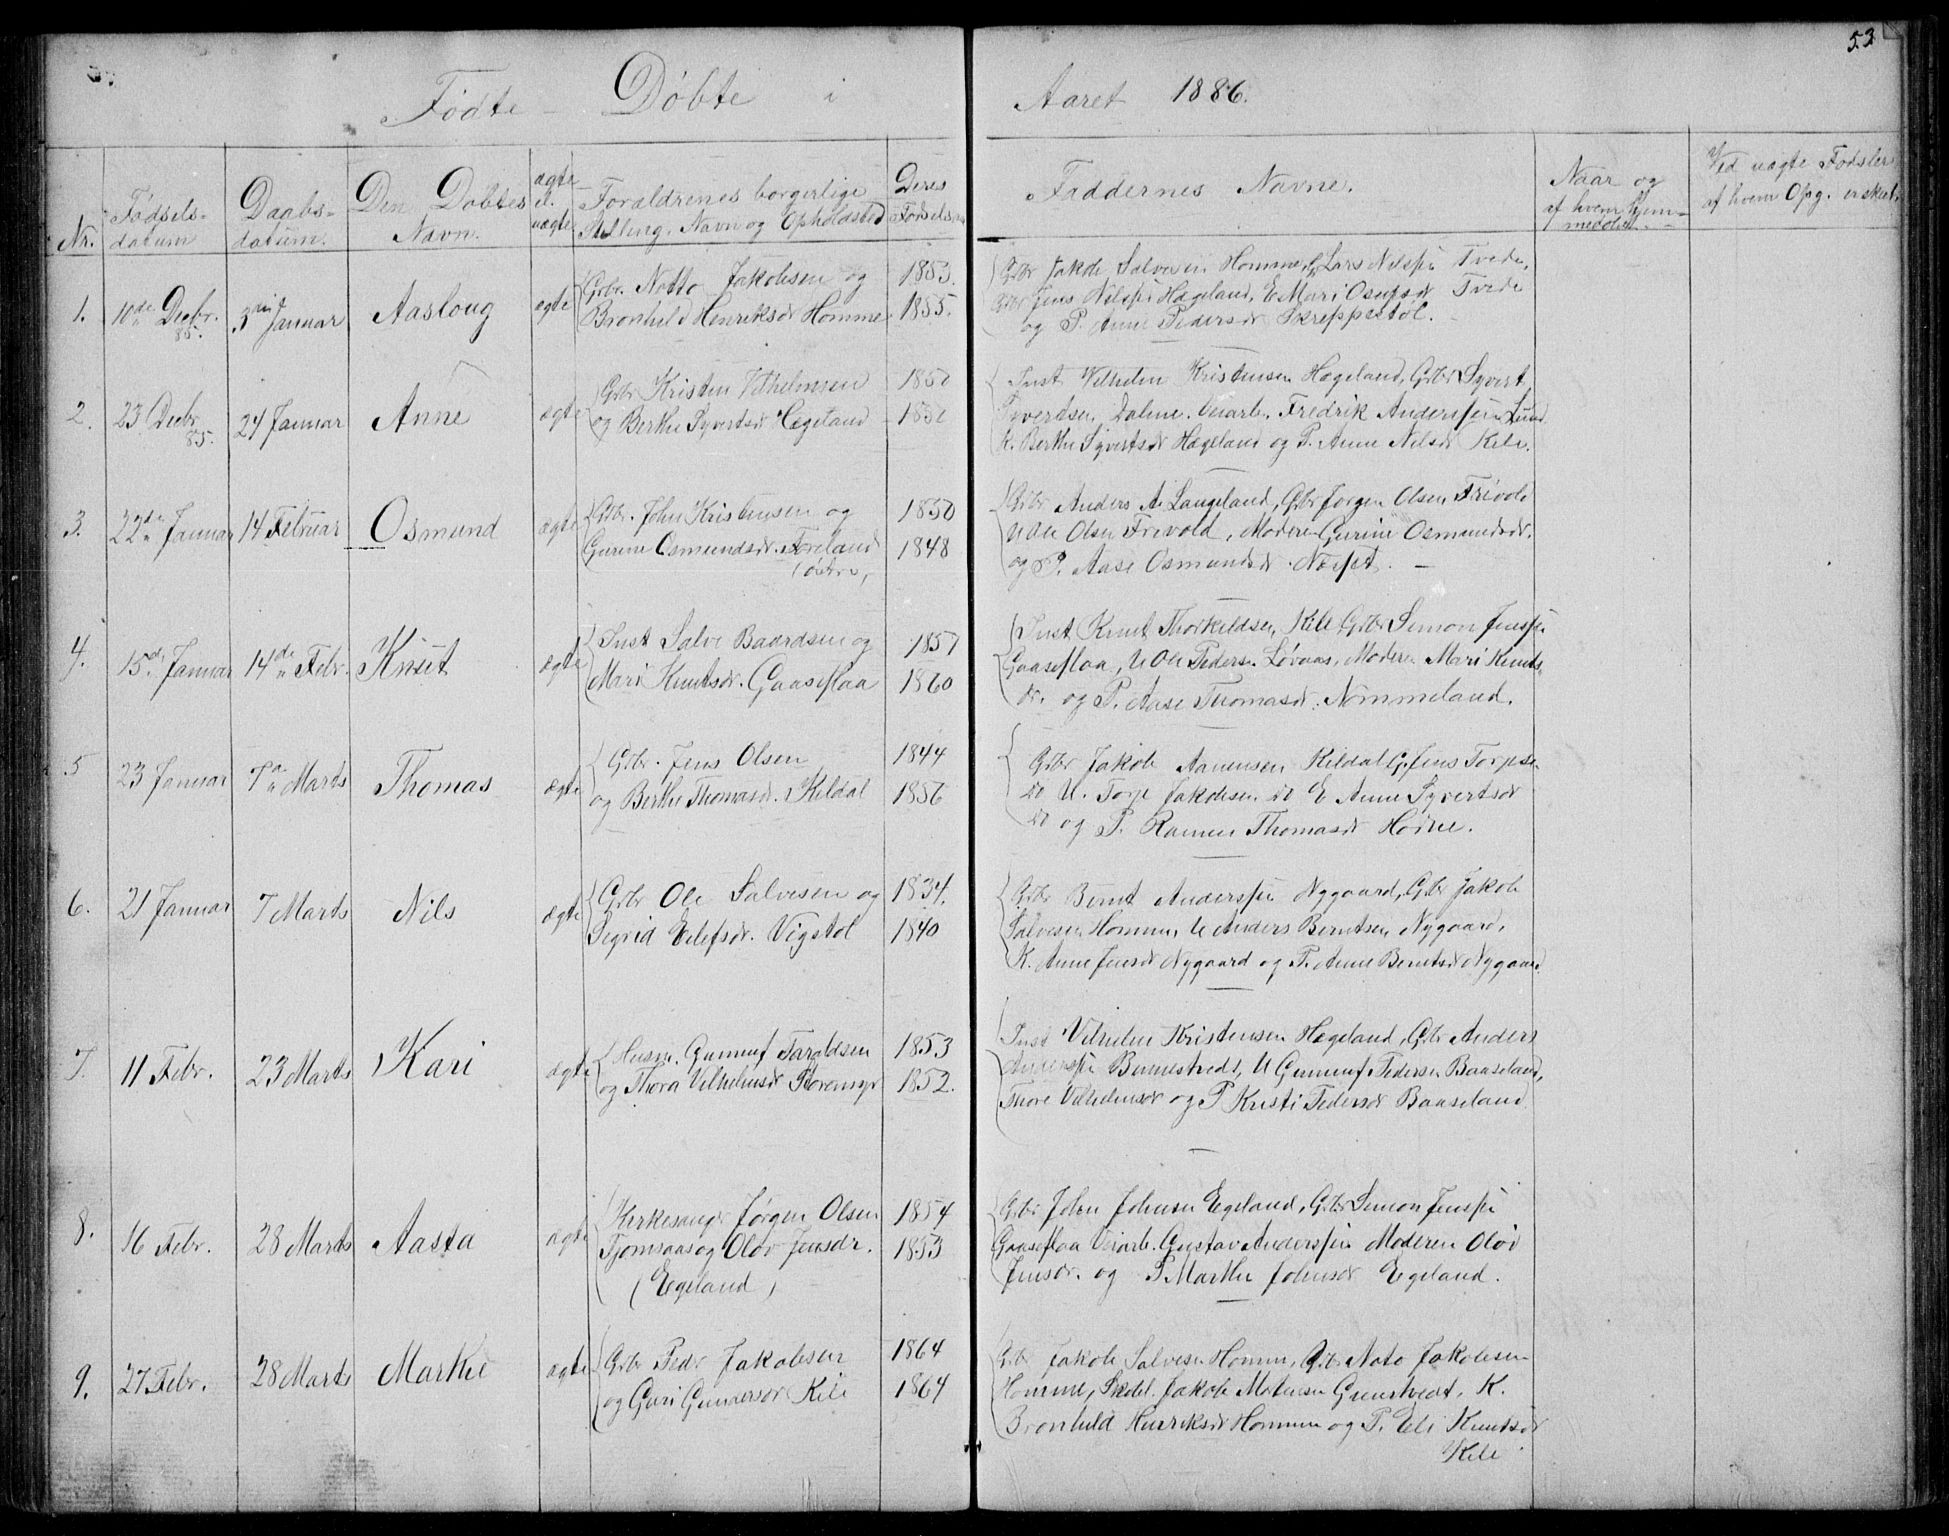 53
Fødte - Døbte i Aaret 1886.
Nr. Fødsels-datum Daabs-datum. Den Døbtes Navn. ægte el. uægte Forældrenes borgerlige Stilling, Navn og Opholdsted Deres Fødselsaar Faddernes Navne. Naar og af hvem hjem-medøbt. Ved uægte Fødsler af hvem Opg. er skeet.
1. 10de Decbr. 85. 3die Januar Aasloug ægte Grbr. Notto Jakobsen og 1853.
Brønhild Henriksdr Homme. 1855.
Grbr Jakob Salvesen Homme, G Lars Nilssen Tvede,
Grbr Jens Nilssen Hægeland, E Mari Osufsdr Tvede
og P. Anne Pedersdr Skreppestøl.
2. 23 Decbr 85. 24 Januar Anne ægte Grbr Kristen Vilhelmsen 1850
og Berthe Syvertsdr Hægeland
Inst Vilhelm Kristensen Hægeland, Grbr Syvert
Syvertsen Dalene. Veiarb. Fredrik Anderssen Lund
K. Berthe Syvertsdr Hægeland og P. Anne Nilsdr Kile.
3. 22de Januar 14 Februar Osmund ægte Grbr. John Kristensen og 1850
Gurine Osmundsdr. Foreland 1848
(østre)
Grbr Anders A. Langeland, Grbr Jørgen Olsen Frivold
U Ole Olsen Frivold, Moderen Gurine Osmundsdr.
og P. Aase Osmundsdr. Næset. -
4. 15de Januar 14de Febr. Knut ægte Inst Salve Baardsen og 1857
Mari Knutsdr. Gaaseflaa 1860
Inst Knut Thorkildsen Kile Grbr Simon Jenssen
Gaaseflaa, U Ole Pedersen Løvaas, Moderen Mari Knuts-
dr. og P. Aase Thomasdr. Nommeland.
5 23 Januar 7de Marts Thomas ægte Grbr. Jens Olsen 1844
og Berthe Thomasdr. Kildal 1856
Grbr Jakob Aanensen Kildal G Jens Torjes.
do U. Torje Jakobsen do E Anne Syvertsdr
do og P. Ramen Thomasdr Hodne.
6. 21 Januar 7 Marts Nils ægte Grbr Ole Salvesen og 1834.
Sigrid Eilefsdr. Vigstøl 1840
Grbr Bernt Anderssen Nygaard, Grbr Jakob
Salvesen Homme, U Anders Berntsen Nygaard,
K. Anne Jensdr Nygaard og P. Anne Berntsdr Nygaard
7. 11 Febr. 23 Marts Kari ægte Husm. Gunnuf Taraldsen 1853
og Thora Vilhelmsdr Storemyr 1852.
Inst Vilhelm Kristensen Hægeland, Grbr Anders
Anderssen Binnestvedt, U Gunnuf Pedersen Baaseland,
Thore Vilhelmsdr og P Kristi Pedersdr Baaseland
8. 16 Febr. 28 Marts Aasta ægte Kirkesanger Jørgen Olsen 1854
Tjomsaas og Oløv Jensdr. 1853
(Egeland)
Grbr John Johnsen Egeland, Grbr Simon Jenssen
Gaaseflaa Veiarb. Gustav Anderssen Moderen Oløv
Jensdr. og P Marthe Johnsdr Egeland.
9. 27 Febr. 28 Marts Marthe ægte Grbr Peder Jakobsen 1864
og Guri Gundersdr Kile 1864
Grbr Jakob Salvesen Homme, Grbr Noto Jakobsen
Homme, Skoel. Jakob Mathisen Grenstvedt, K.
Brønhild Henriksdr Homme og P. Eli Knutsdr
Kile